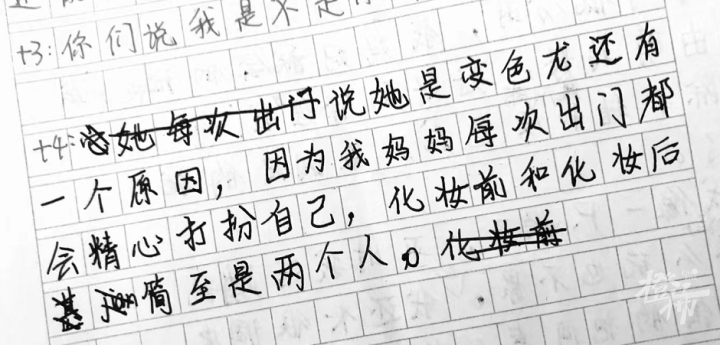 t3：你们说我是不是
t4：她每次出门说她是变色龙还有
一个原因，因为我妈妈每次出门都
会精心打扮自己，化妆前和化妆后
jian简至是两个人。化妆前